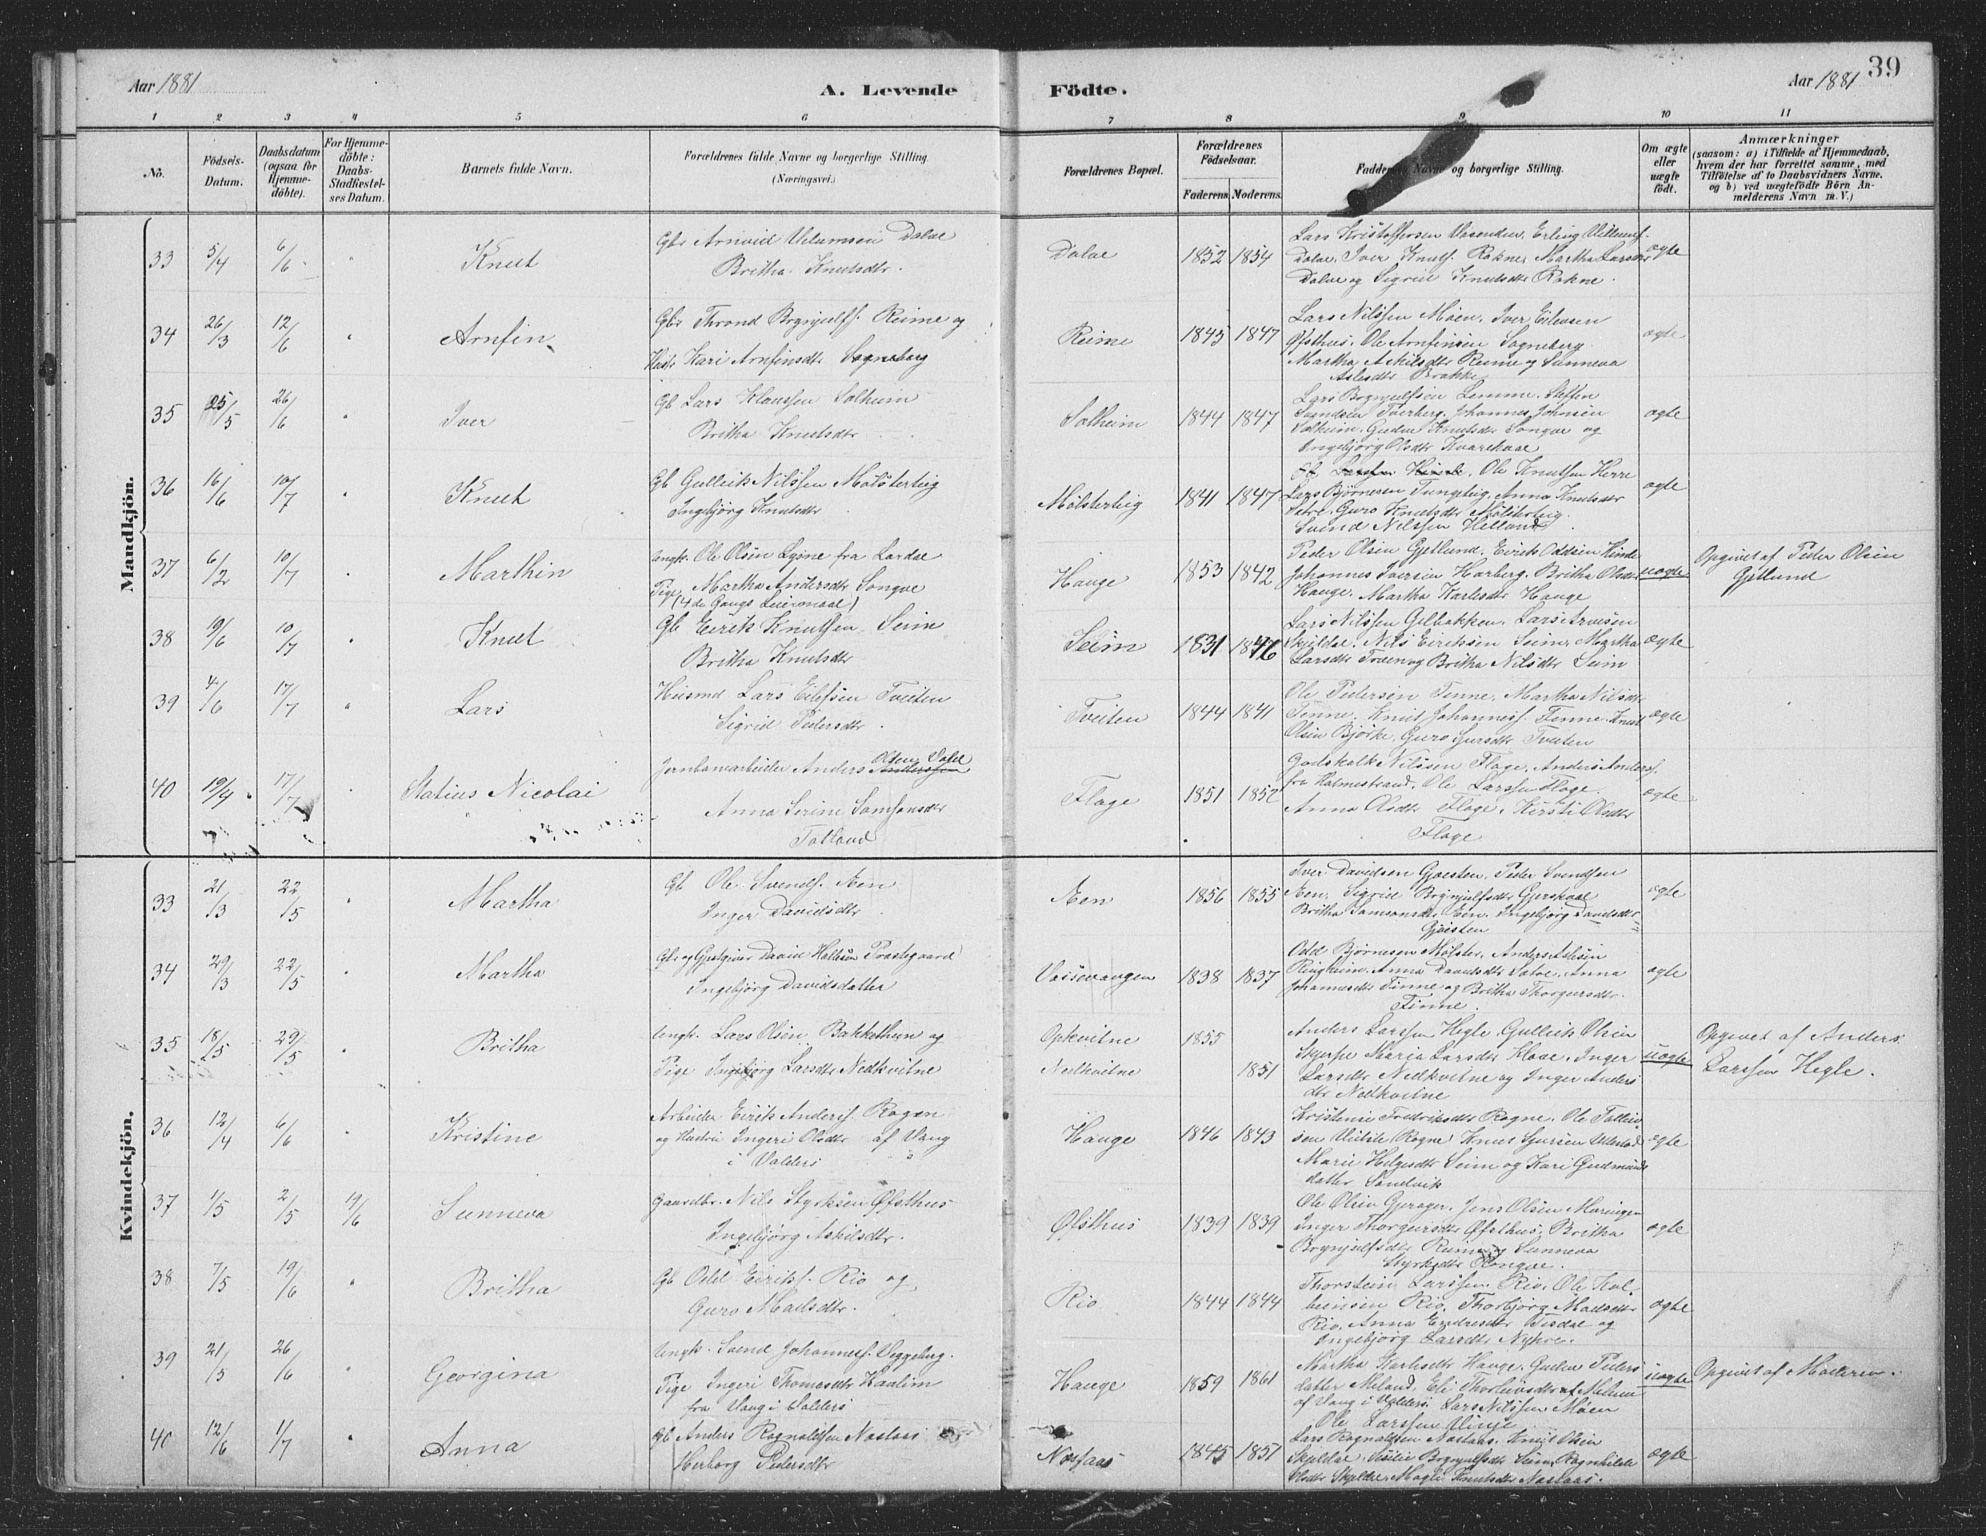 Aar 1881
A. Levende
Födte.
Aar 1881
39
1 2 3 4 5 6 7 8 9 10 11
No.
Födsels-
Datum.
Daabsdatum
(ogsaa for
Hjemme-
döbte).
For Hjemme-
döbte:
Daabs-
Stadfæstel-
ses Datum.
Barnets fulde Navn.
Forældrenes fulde Navne og borgerlige Stilling.
(Næringsvei.)
Forældrenes Bopæl.
Forældrenes
Födselsaar.
Faderens. Moderens.
Faddernes Navne og borgerlige Stilling.
Om ægte
eller
uægte
födt.
Anmærkninger
(saasom: a) i Tilfælde af Hjemmedaab,
hvem der har forrettet samme, med
Tilföielse af to Daabsvidners Navne,
og b) ved uægtefödte Börn An-
melderens Navn m. V.)
Mandkjön.
33 5/4 6/6 " Knut
Gbr Arnvid Dalve
Britha Knutsdtr.
Dalve 1852 1854
Lars Kristoffersen
Dalve. Iver Knuts. Rokne. Martha Larsdtr
Dalve og Sigrid Knutsdtr Rokne.
ægte
34 26/3 12/6 " Arnfin
Gbr Thrond Brynjulfs. Reime og
Hustr Kari Arnfinsdtr Sogneberg
Reime 1845 1847
Lars Nilssen Möen. Iver
Öfsthus. Ole Arnfinsen Sogneberg
Martha Askilsdtr Reime og Sunneva
Brække
ægte
35 25/5 26/6 " Iver
Gb Lars Klaussen Solheim
Britha Knutsdtr
Solheim 1844 1847
Lars Brynjulfsen Lemme. Steffen
Svendsen Tverberg. Johannes Johnsen
Solheim. Knutsdtr Songve og
Ingebjörg Olsdtr
ægte
36 16/6 10/7 " Knut
Gb Gulleik Nilssen Mölsterteig
Ingebjörg Knutsdtr
Mölsterteig 1841 1847
Ole Knutsen Herre
Lars Björnesen Tungteig. Anna Knutsdtr
Guro Knutsdtr Mölsterteig
Svend Nilssen Helland
ægte
37 6/2 10/7 " Marthin
Ungk. Ole Olsen Lyöne fra Lærdal
Pige Martha Andersdtr Songve
(4de Gangs Leiermaal)
Hauge 1853 1842
Peder Olsen Gjelland. Eirik Oddsen Hinde
Johannes Iversen Harberg. Britha Olsdtr
Hauge. Martha Karlsdtr Hauge
uægte
Opgivet af Peder Olsen
Gjelland
38 19/6 10/7 " Knut
Gb Eirik Knutsen Seim
Britha Knutsdtr
Seim 1831 1846
Lars Nilssen Gilbakken. Lars Arvesen
Skjeldal. Nils Eiriksen Seim. Martha
Larsdtr Tveen og Britha Nilsdtr Seim
ægte
39 4/6 17/7 " Lars
Husmd Lars Eilefsen Tveiten
Sigrid Pedersdtr.
Tveiten 1844 1841
Ole Pedersen Tenne. Martha Nilsdtr
Tenne. Knut Johanness. Finne. Knut
Olsen Björke. Guro Sjursdtr Tveiten
ægte
40 19/4 17/7 " Statius Nicolai
Jernbanearbeider Anders Anderssen
Anna Serine Samsonsdtr
Totland
Flage 1851 1852
Godskalk Nilssen Flage. Anders Anders.
fra Holmestrand. Ole Larssen Flage.
Anna Olsdtr Flage. Kirsti Olsdtr
Flage
ægte
Kvindekjön.
33 21/3 22/5 " Martha
Gb Ole Svends. Æen
Inger Davidsdtr
Æen 1856 1855
Iver Davidsen Gjösten. Peder Svendsen
Æen. Sigrid Brynjulfsdtr Gjerskaal
Britha Samsonsdtr Een. Ingebjörg Davidsdtr
Gjösten
ægte
34 29/3 22/5 " Martha
Gbr og Gjestgiver David Præstegaard
Ingebjörg Davidsdatter
Vossevangen 1838 1837
Odd Björnesen Mölster. Anders
Ringheim. Anna Davidsdtr Anna
Johannesdtr Finne og Britha Thorgersdtr.
Finne
ægte
35 18/5 29/5 " Britha
Ungk. Lars Olsen Bakkethun og
Pige Ingebjörg Larsdtr Nedkvitne
Opkvitne 1855
Nedkvitne 1851
Anders Larssen Hegle. Gulleik Olsen
Skjerpe Maria Larsdtr Klove. Inger
Larsdtr Nedkvitne og Inger Anders
dtr Nedkvitne
uægte
Opgivet af Anders
Larssen Hegle.
36 12/4 6/6 " Kristine
Arbeider Eirik Anders. Rogen
og Hustru Ingeri Olsdtr af Vang
i Valders
Hauge 1846 1843
Kristense Fredriksdtr Rogne. Ole
sen Rogne Knut Sjursen
Marie Helgesdtr Seim og Kari Gudmunds
datter Sandvik
ægte
37 1/5 2/5 19/6 Sunneva
Gaardbr. Nils Styrksen Öfsthus
Ingebjörg Askilsdtr.
Öfsthus 1839 1839
Ole Olsen Gjerager. Jens Olsen
Inger Thorgersdtr Öfsthus. Britha
Brynjulfsdtr Reime og Sunneva
Styrksdtr
ægte
38 7/5 19/6 " Britha
Gb Odd Eiriks. Rio og
Guro Madsdtr.
Rio 1844 1844
Thorstein Larssen Rio. Ole Kol
beinsen Rio. Thorbjörg Madsdtr
Rio. Anna Endresdtr og
Ingebjörg Larsdtr Nyhre.
ægte
39 21/5 26/6 " Georgina
Ungk. Svend Johannes.
Pige Ingeri Thomasdtr Kaalim
fra Vang i Valders
Hauge 1859 1861
Martha Karlsdtr Hauge. Peders
datter Eli
af Vang i Valders Lars Nilssen Möen
Ole Larssen Vinje
uægte
Opgivet af Moderen.
40 12/6 1/7 " Anna
Gb Anders Ragnaldsen Næsfaas
Herborg Pedersdtr
Næsfaas 1845 1857
Lars Ragnaldsen Næsfaas. Knut Olsen
Skjeldal. Brynjulfsdtr Seim. Ragnhilde
Olsdtr Skjeldal. Knutsdtr Næsfaas.
ægte